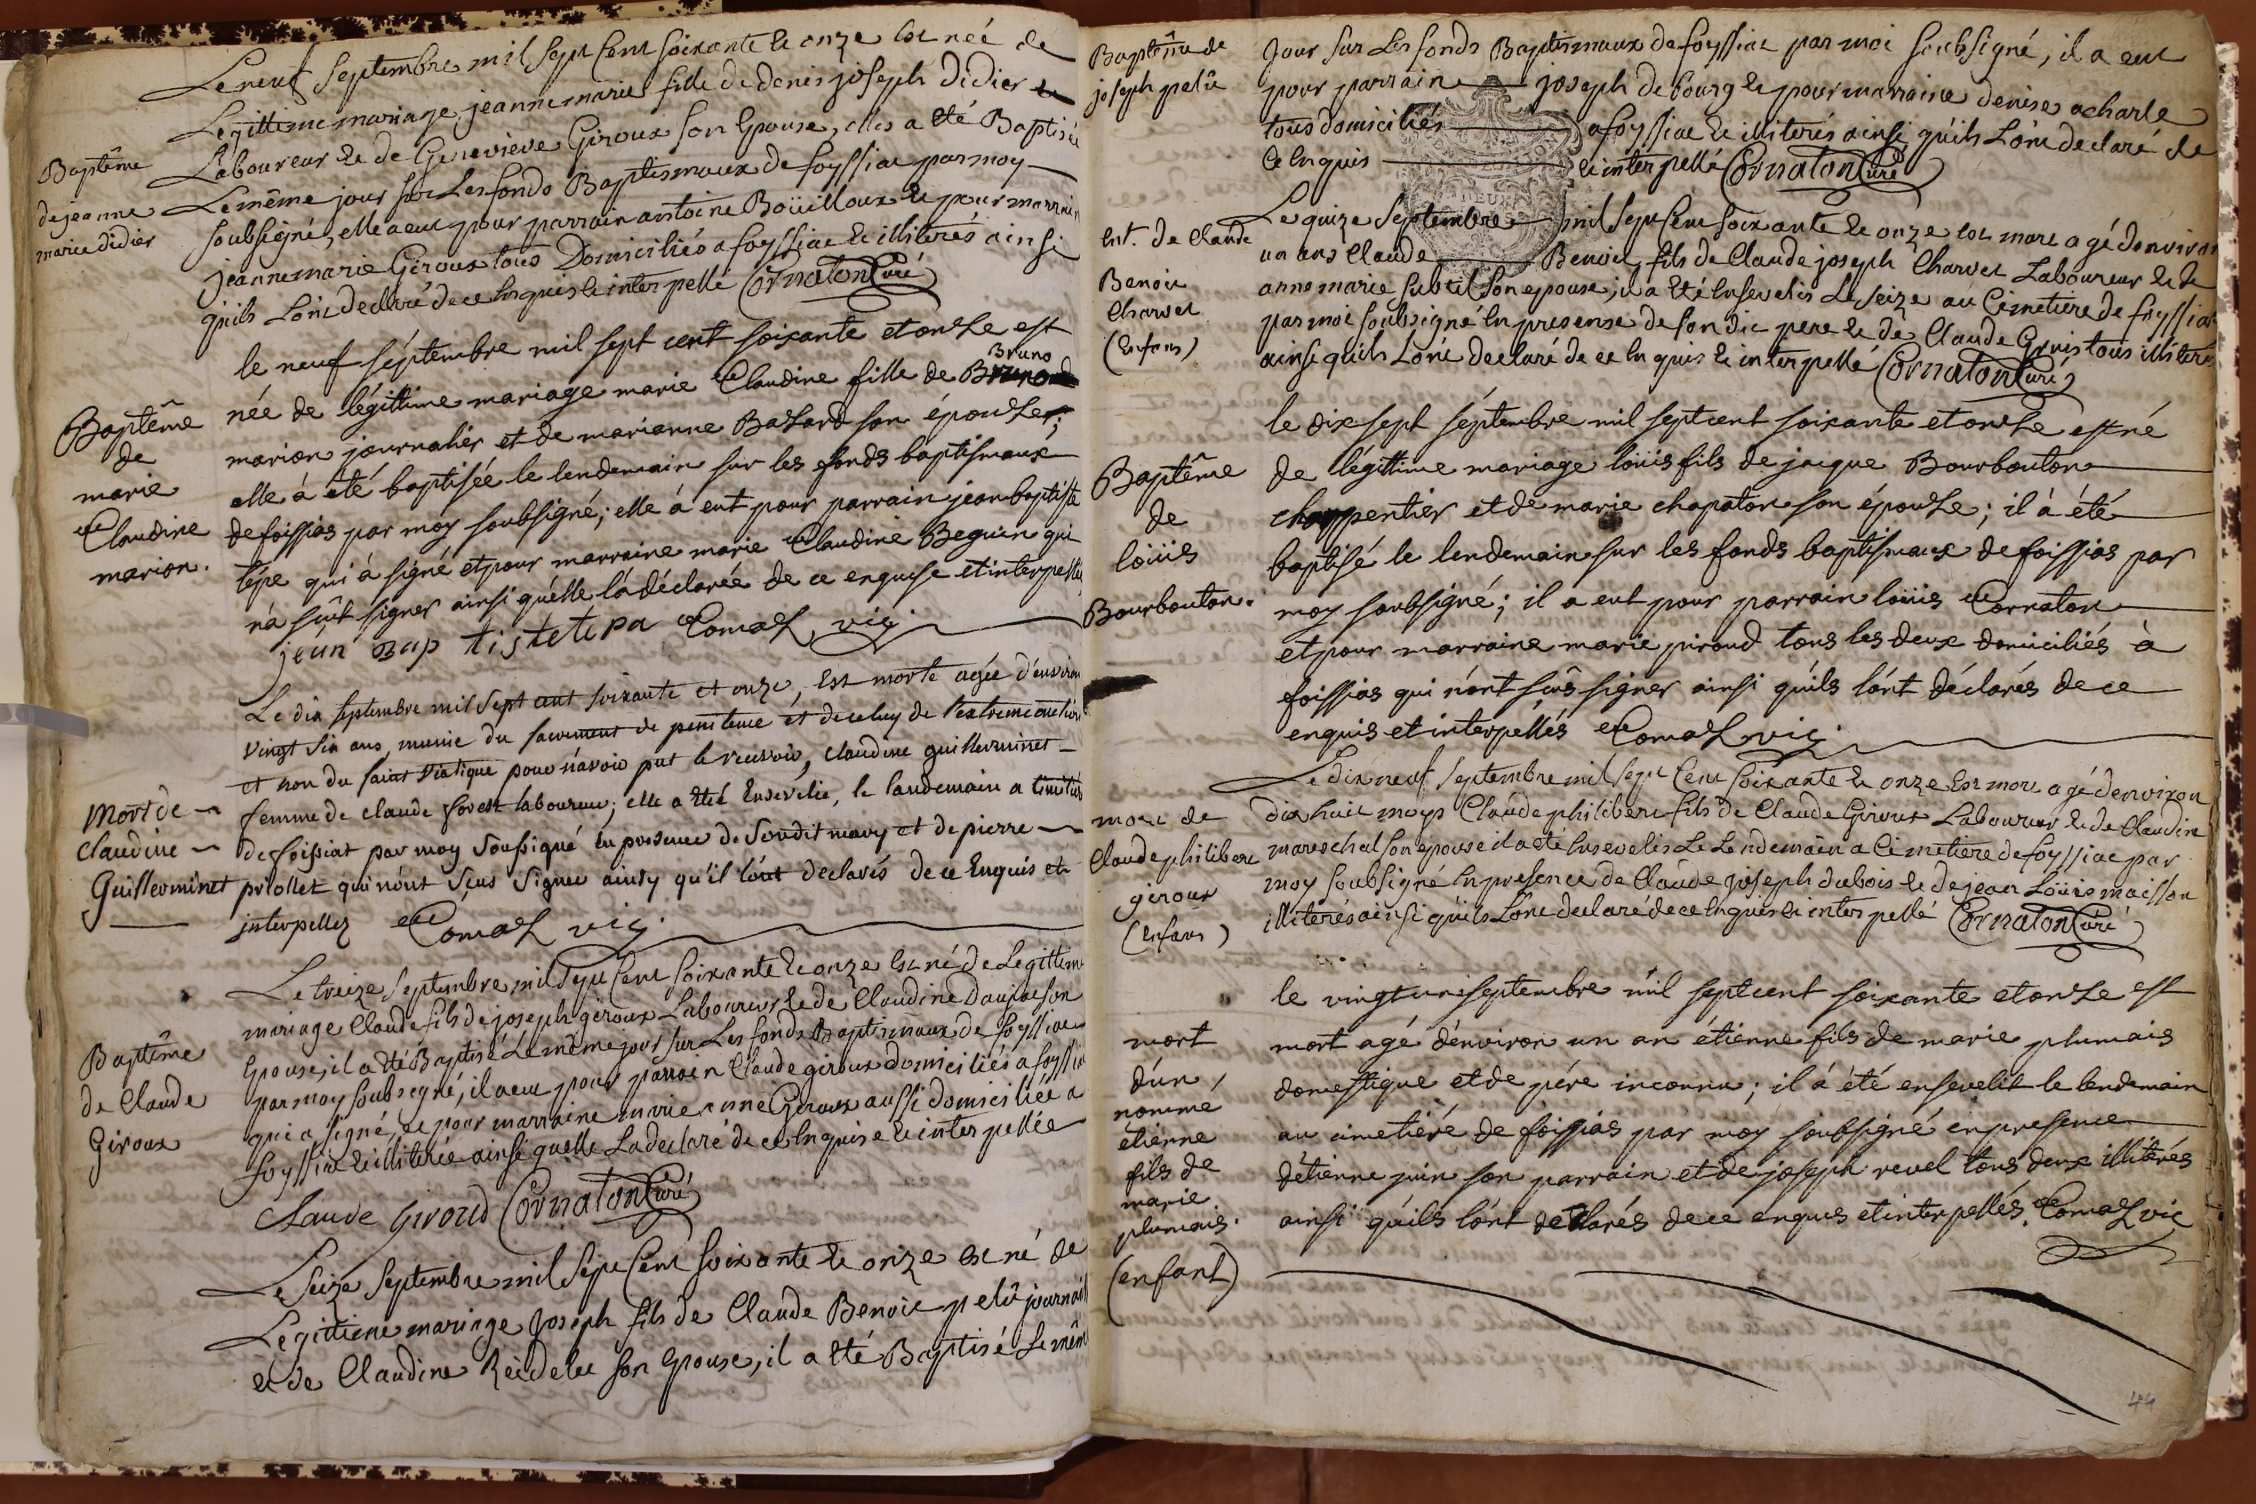 Le neuf Septembre mil sept Cent soixante & onze est née de
Legittime mariage jeanne marie fille de denis joseph didier
Laboureur & de Geneviève Giroux son Epouse, elle a été Baptisée
Le même jour sur Les fonds Baptismaux de foyssiac par moy
soubsigné, elle a eut pour parrain antoine Boüilloux & pour marrain
jeanne marie Giroux tous Domiciliés a foyssiac & illiterés ainsi
quils L'ont declaré de ce Enquis & interpellé Cornaton Curé
Baptême
de jeanne
marie didier
le neuf séptembre mil sept cent soixante et onze est
née de légittime mariage marie Claudine fille de Bruno
marion journalier et de marianne Bazard son épouse;
elle à été baptisée le lendemain sur les fonds baptismaux
de foissias par moy soubsigné; elle à eut pour parrain jean baptiste
tépe qui à signé et pour marraine marie Claudine Beguin qui
n'a sçut signer ainsi qu'élle l'a déclarée de ce enquise et interpellée
jean Bap tiste tepa Comas vic
Baptême
de
marie
Claudine
marion.
Le dix septembre mil sept cent soixante et onze, Est morte agée d'environ
vingt six ans, munie du sacrement de penitence et de celuy de l'extremeonction
et non du saint viatique pour n'avoir put le recevoir, claudine guillerminet
femme de claude forest laboureur; elle a été Ensevelie, le landemain a cimetiere
de foissiat par moy soussigné En presence de soudit mary et de pierre
priollet qui n'ont sçus signer ainsy qu'il l'ont declarés de ce Enquis et
interpellez Comas vic.
Mort de
claudine
Guillerminet
Le treize Septembre mil sept Cent soixante & onze Est né de Legittime
mariage Claude fils de joseph giroux Laboureur & de Claudine Daujat son
Epouse, il a été Baptisé Le même jour sur Les fonds Baptismaux de foyssiac
par moy soubsigné, il a eut pour parrain Claude giroux domiciliés a foyssiac
qui a signé, & pour marraine marie anne Giroux aussi domiciliée a
foyssiac & illiterée ainsi quelle La declaré de ce Enquise & interpellée
Claude Giroud Cornaton Curé
Baptême
de Claude
Giroux
Le Seize Septembre mil sept Cent soixante & onze est né de
Legittime mariage joseph fils de Claude Benoit pelû journali
& de Claudine Reidelet son Epouse, il a été Baptisé Le même
Baptême de
joseph pelû
Jour sur Les fonds Baptismaux de foyssiac par moi soubsigné, il a eut
pour parrain joseph de bourg & pour marraine denise acharle
tous domiciliés a foyssiac & illiterés ainsi, qu'ils L'ont declaré de
Ce Enquis & interpellé Cornaton Curé
Le quize Septembre mil sept Cent soixante & onze est mort agé d'environ
un ans Claude Benoit fils de Claude joseph Charvet Laboureur & de
anne marie subtil son epouse; il a été Ensevelis Le seize au Cimetiere de foyssiac
par moi soubsigné En presense de son dit pere & de Claude Gruis tous illiterés
ainse qu'ils L'ont declaré de ce En quis & interpellé Cornaton Curé
Ent. de Claude
Benoit
Charvet
(Enfans)
le dix sept séptembre mil sept cent soixante et onze est né
de légittime mariage loüis fils de jacque Bourbouton
charpentier et de marie chapaton son épouse; il à été
baptisé le lendemain sur les fonds baptismaux de foissias par
moy soubsigné; il a eut pour parrain loüis Cornaton
et pour marraine marie piroud tous les deux domiciliés à
foissias qui n'ont sçûs signer ainsi qu'ils l'ont déclarés de ce
enquis et interpellés Comas vic.
Baptême
de
loüis
Bourbouton.
Le dix neuf Septembre mil sept Cent soixante & onze Est mort agé d'environ
dix huit moys Claude philibert fils de Claude Giroux Laboureur & de Claudine
mareschal son epouse il a été Ensevelis Le Lendemain a Cimetiere de foyssiac par
moy soubsigné En presence de Claude joseph dubois & de jean Loüis maisson
illiterés ainsi qu'ils L'ont declaré de ce Enquis & interpellé Cornaton Curé
mort de
Claude philibert
giroux
(Enfans)
le vingt un septembre mil sept cent soixante et onze est
mort agé d'environ un an étienne fils de marie plumais
domestique et de pére inconnu; il à été ensevelit le lendemain
au cimetiére de foissias par moy soubsigné en presence
d'étienne juin son parrain et de joseph revel tous deux illitérés
ainsi qu'ils l'ont declarés de ce enquis et interpellés. Comas vic
mort
d'un
nommé
étienne
fils de
marie
plumais.
(enfant)
44